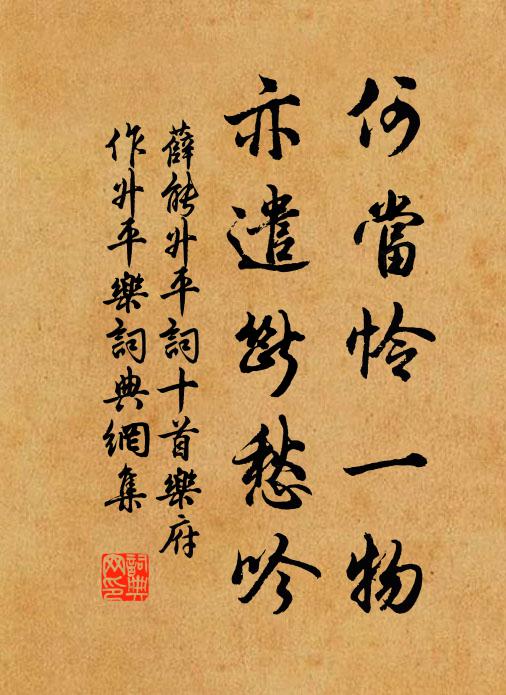 何當怜一物
亦遣斷愁吟
薛能升平詞十首樂府
作升平樂詞典網集
詞典網印